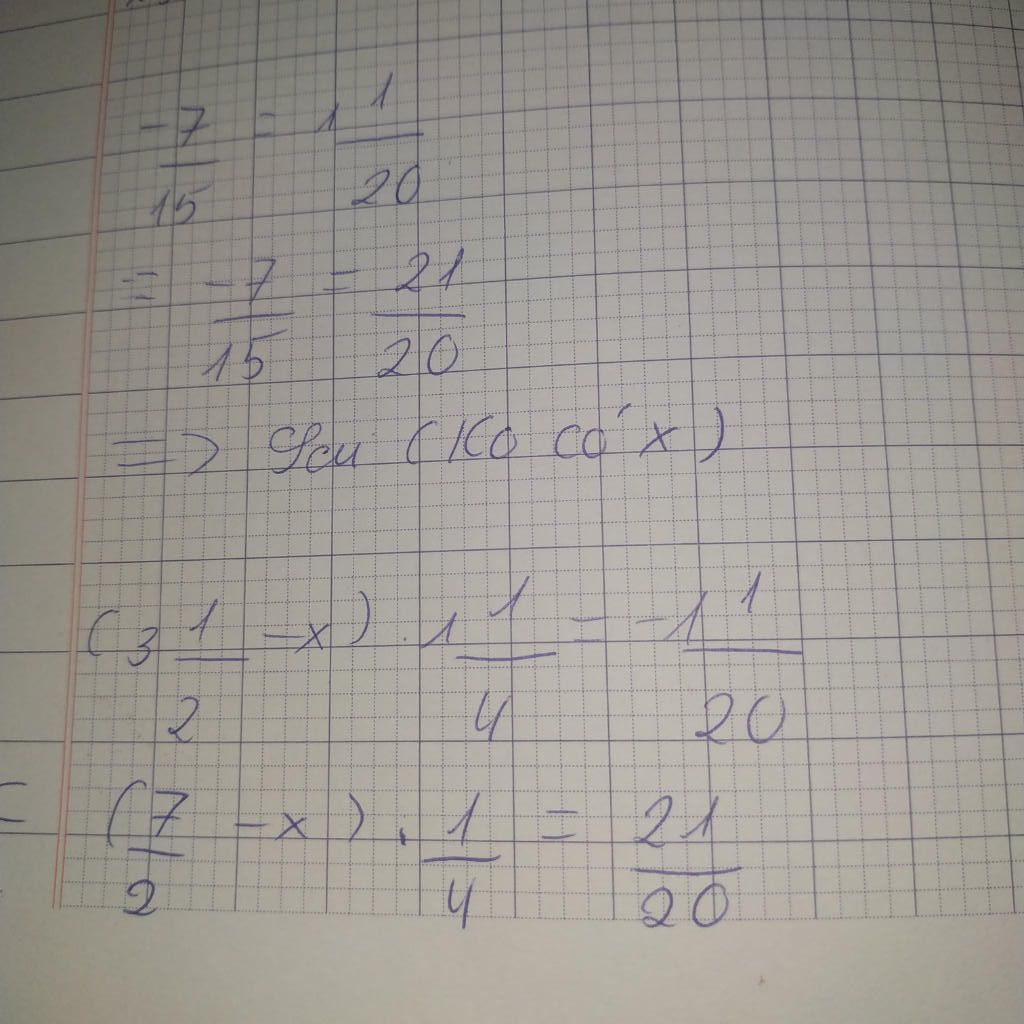 -7/15 = 1 1/20
= -7/15 = 21/20
=> Sai (Ko có x)
(3 1/2 - x) . 1 1/4 = -1 1/20
= (7/2 - x) . 1/4 = 21/20